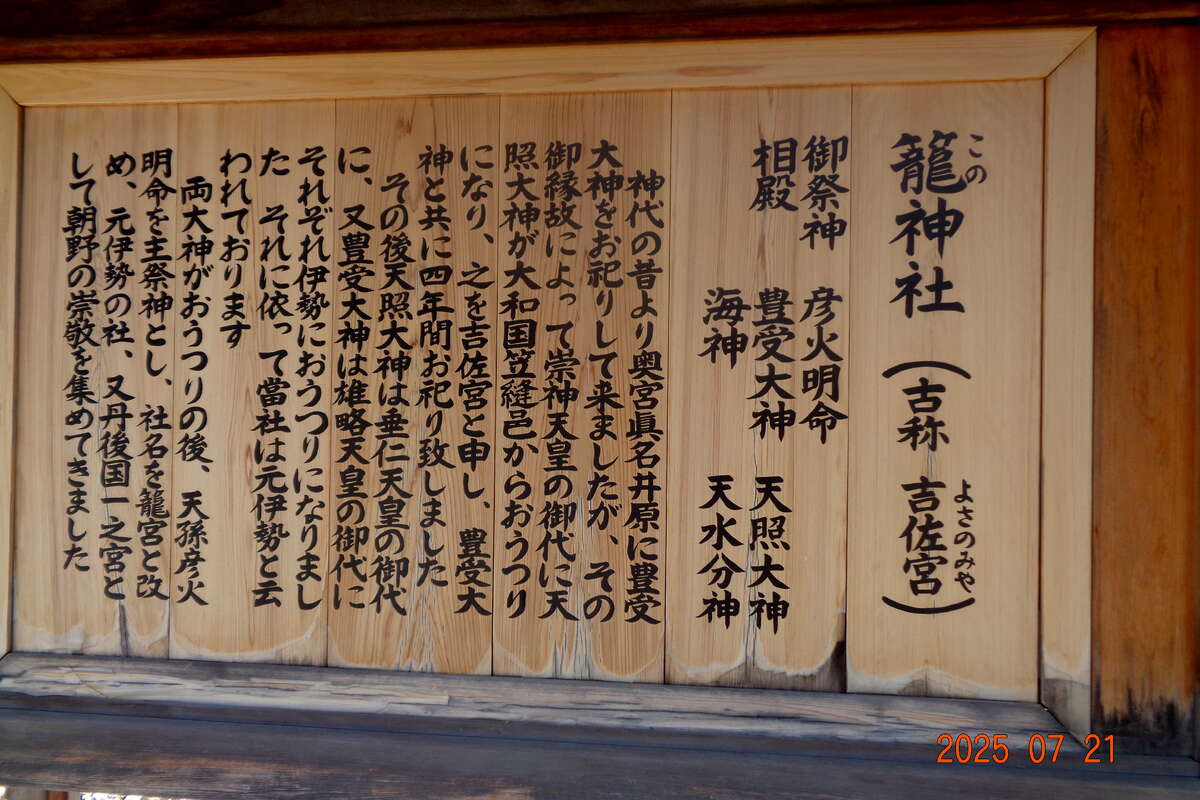 籠神社（古称 吉佐宮）
この
よさのみや
御祭神 彦火明命
相殿 豊受大神 天照大神
海神 天水分神
神代の昔より奥宮眞名井原に豊受
大神をお祀りして来ましたが、その
御縁故によって崇神天皇の御代に天
照大神が大和国笠縫邑からおうつり
になり、之を吉佐宮と申し、豊受大
神と共に四年間お祀り致しました
その後天照大神は垂仁天皇の御代
に、又豊受大神は雄略天皇の御代に
それぞれ伊勢におうつりになりまし
た それに依って當社は元伊勢と云
われております
両大神がおうつりの後、天孫彦火
明命を主祭神とし、社名を籠宮と改
め、元伊勢の社、又丹後国一之宮と
して朝野の崇敬を集めてきました
2025 07 21